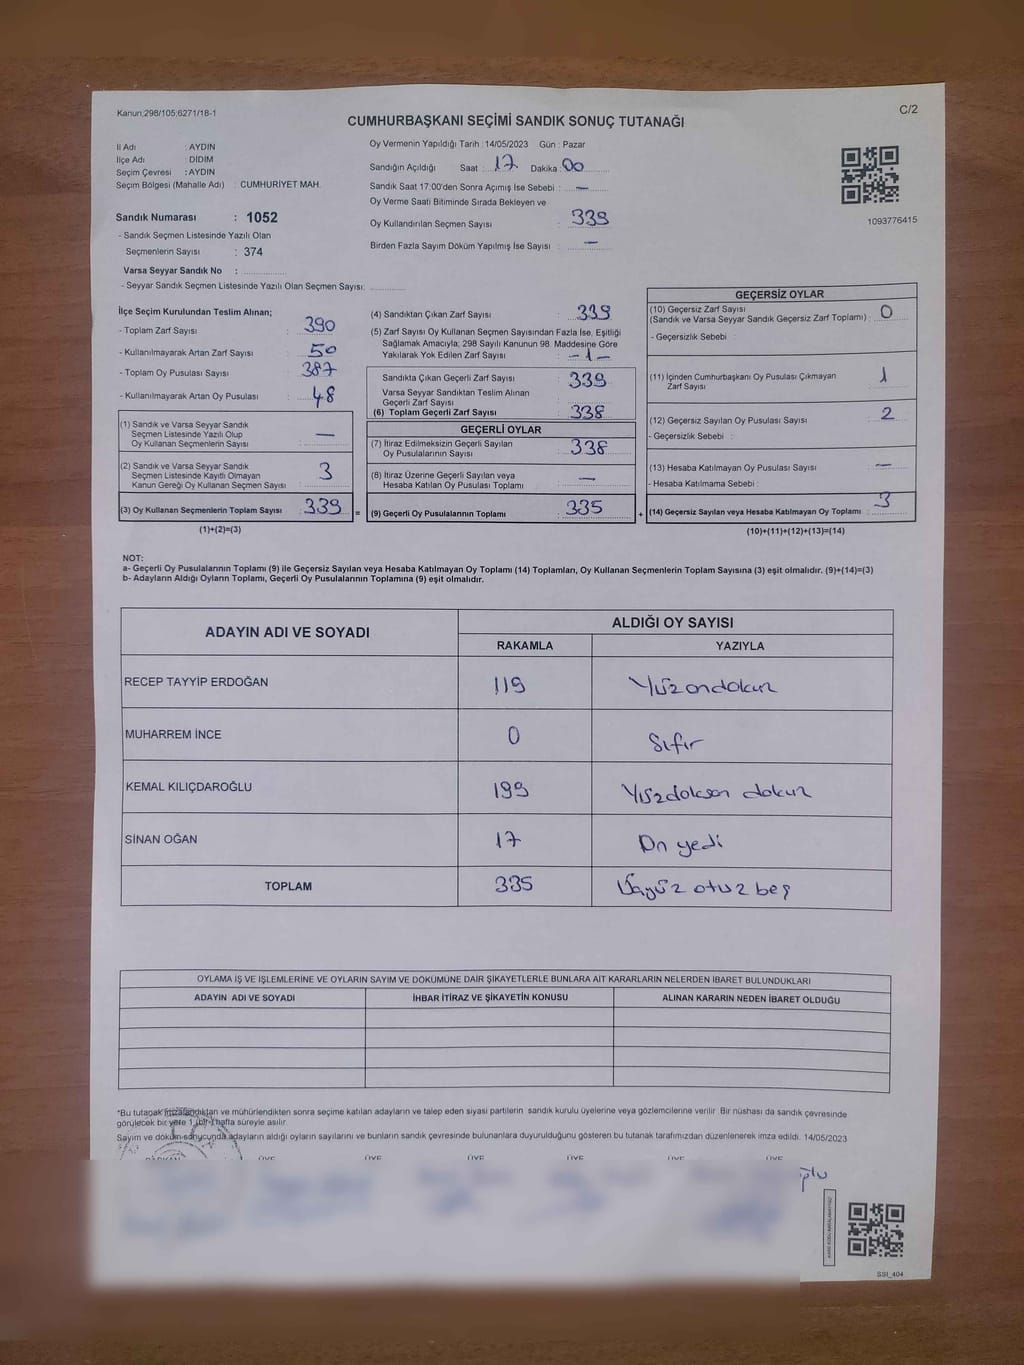 Kanun;298/105;6271/18-1
C/2
CUMHURBAŞKANI SEÇİMİ SANDIK SONUÇ TUTANAĞI
İl Adı : AYDIN
İlçe Adı : DİDİM
Seçim Çevresi : AYDIN
Seçim Bölgesi (Mahalle Adı) : CUMHURİYET MAH.
Sandık Numarası : 1052
- Sandık Seçmen Listesinde Yazılı Olan
Seçmenlerin Sayısı : 374
Varsa Seyyar Sandık No :
- Seyyar Sandık Seçmen Listesinde Yazılı Olan Seçmen Sayısı:
Oy Vermenin Yapıldığı Tarih : 14/05/2023 Gün : Pazar
Sandığın Açıldığı Saat : 17 Dakika : 00
Sandık Saat 17:00'den Sonra Açımış İse Sebebi : —
Oy Verme Saati Bitiminde Sırada Bekleyen ve
Oy Kullandırılan Seçmen Sayısı : 339
Birden Fazla Sayım Döküm Yapılmış İse Sayısı : —
1093776415
İlçe Seçim Kurulundan Teslim Alınan;
- Toplam Zarf Sayısı : 390
- Kullanılmayarak Artan Zarf Sayısı : 50
- Toplam Oy Pusulası Sayısı : 387
- Kullanılmayarak Artan Oy Pusulası : 48
(1) Sandık ve Varsa Seyyar Sandık
Seçmen Listesinde Yazılı Olup
Oy Kullanan Seçmenlerin Sayısı : —
(2) Sandık ve Varsa Seyyar Sandık
Seçmen Listesinde Kayıtlı Olmayan
Kanun Gereği Oy Kullanan Seçmen Sayısı : 3
(3) Oy Kullanan Seçmenlerin Toplam Sayısı : 339 =
(1)+(2)=(3)
(4) Sandıktan Çıkan Zarf Sayısı : 339
(5) Zarf Sayısı Oy Kullanan Seçmen Sayısından Fazla İse, Eşitliği
Sağlamak Amacıyla; 298 Sayılı Kanunun 98. Maddesine Göre
Yakılarak Yok Edilen Zarf Sayısı : -1-
Sandıkta Çıkan Geçerli Zarf Sayısı : 339
Varsa Seyyar Sandıktan Teslim Alınan
Geçerli Zarf Sayısı
(6) Toplam Geçerli Zarf Sayısı : 338
GEÇERLİ OYLAR
(7) İtiraz Edilmeksizin Geçerli Sayılan
Oy Pusulalarının Sayısı : 338
(8) İtiraz Üzerine Geçerli Sayılan veya
Hesaba Katılan Oy Pusulası Toplamı : —
(9) Geçerli Oy Pusulalarının Toplamı : 335 +
GEÇERSİZ OYLAR
(10) Geçersiz Zarf Sayısı
(Sandık ve Varsa Seyyar Sandık Geçersiz Zarf Toplamı) : 0
- Geçersizlik Sebebi :
(11) İçinden Cumhurbaşkanı Oy Pusulası Çıkmayan
Zarf Sayısı : 1
(12) Geçersiz Sayılan Oy Pusulası Sayısı : 2
- Geçersizlik Sebebi :
(13) Hesaba Katılmayan Oy Pusulası Sayısı : —
- Hesaba Katılmama Sebebi :
(14) Geçersiz Sayılan veya Hesaba Katılmayan Oy Toplamı : 3
(10)+(11)+(12)+(13)=(14)
NOT:
a- Geçerli Oy Pusulalarının Toplamı (9) ile Geçersiz Sayılan veya Hesaba Katılmayan Oy Toplamı (14) Toplamları, Oy Kullanan Seçmenlerin Toplam Sayısına (3) eşit olmalıdır. (9)+(14)=(3)
b- Adayların Aldığı Oyların Toplamı, Geçerli Oy Pusulalarının Toplamına (9) eşit olmalıdır.
ADAYIN ADI VE SOYADI
ALDIĞI OY SAYISI
RAKAMLA YAZIYLA
RECEP TAYYİP ERDOĞAN 119 Yüzondokuz
MUHARREM İNCE 0 Sıfır
KEMAL KILIÇDAROĞLU 199 Yüzdoksan dokuz
SİNAN OĞAN 17 On yedi
TOPLAM 335 Üçyüz otuz beş
OYLAMA İŞ VE İŞLEMLERİNE VE OYLARIN SAYIM VE DÖKÜMÜNE DAİR ŞİKAYETLERLE BUNLARA AİT KARARLARIN NELERDEN İBARET BULUNDUKLARI
ADAYIN ADI VE SOYADI İHBAR İTİRAZ VE ŞİKAYETİN KONUSU ALINAN KARARIN NEDEN İBARET OLDUĞU
*Bu tutanak imzalandıktan ve mühürlendikten sonra seçime katılan adayların ve talep eden siyasi partilerin sandık kurulu üyelerine veya gözlemcilerine verilir. Bir nüshası da sandık çevresinde
görülecek bir yere 1 (bir) hafta süreyle asılır.
Sayım ve döküm sonucunda adayların aldığı oyların sayılarını ve bunların sandık çevresinde bulunanlara duyurulduğunu gösteren bu tutanak tarafımızdan düzenlenerek imza edildi. 14/05/2023
BAŞKAN ÜYE ÜYE ÜYE ÜYE ÜYE ÜYE
SSI_404